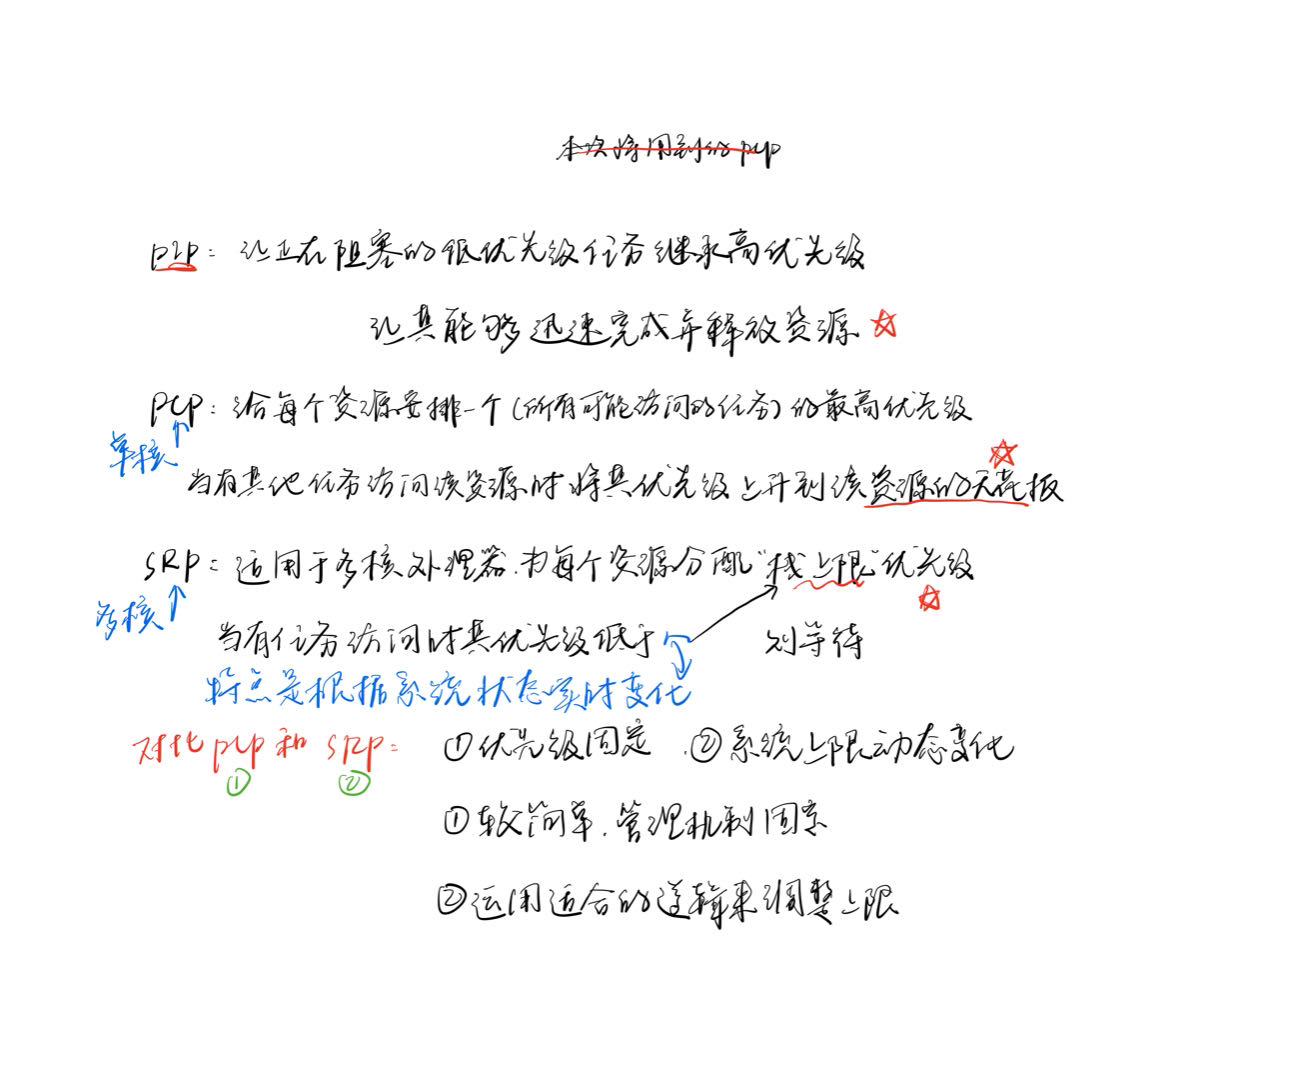 本次将用到的pcp
PIP：让正在阻塞的低优先级任务继承高优先级
让其能够迅速完成并释放资源
PCP：给每个资源安排一个(所有可能访问的任务)的最高优先级
单核
当有其他任务访问该资源时将其优先级上升到该资源的天花板
SRP：适用于多核处理器.为每个资源分配“栈上限”优先级
多核
当有任务访问时其优先级低于 则等待
特点是根据系统状态实时变化
对比pcp和SRP： ①优先级固定 .②系统上限动态变化
① ②
①较简单.管理机制固定
②运用适合的逻辑来调整上限